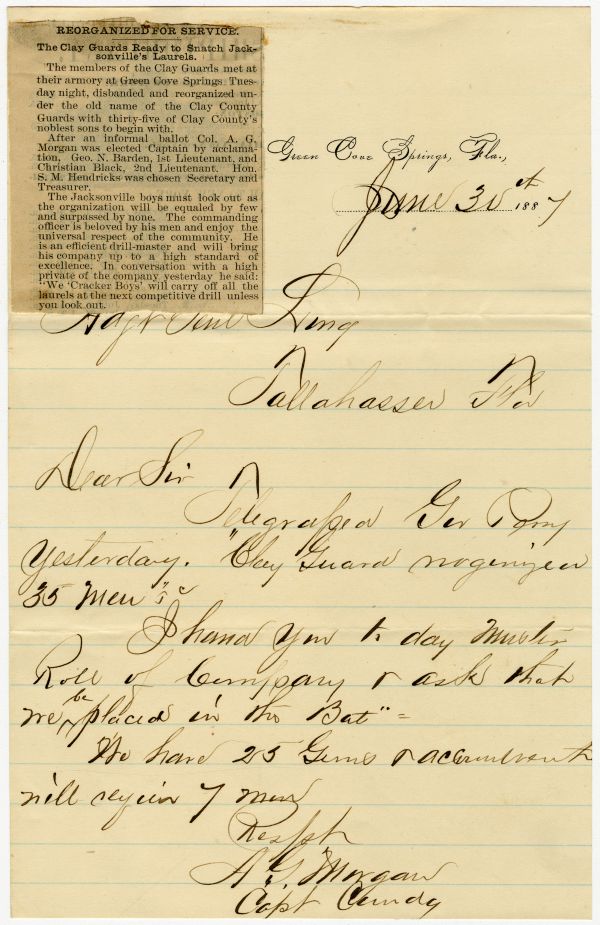 REORGANIZED FOR SERVICE.
The Clay Guards Ready to Snatch Jack-
sonville's Laurels.
The members of the Clay Guards met at
their armory at Green Cove Springs Tues-
day night, disbanded and reorganized un-
der the old name of the Clay County
Guards with thirty-five of Clay County's
noblest sons to begin with.
After an informal ballot Col. A. G.
Morgan was elected Captain by acclama-
tion, Geo. N. Barden, 1st Lieutenant, and
Christian Black, 2nd Lieutenant. Hon.
S. M. Hendricks was chosen Secretary and
Treasurer.
The Jacksonville boys must look out as
the organization will be equaled by few
and surpassed by none. The commanding
officer is beloved by his men and enjoy the
universal respect of the community. He
is an efficient drill-master and will bring
his company up to a high standard of
excellence. In conversation with a high
private of the company yesterday he said:
"We 'Cracker Boys' will carry off all the
laurels at the next competitive drill unless
you look out.
Green Cove Springs, Fla.,
June 30th 1887
Adgt Genl Lang
Tallahassee Fla
Dear Sir
Telegraphed Gov Perry
yesterday. "Clay Guard reorganized
35 Men"
I hand you to day Muster
Roll of Company & ask that
we be placed in the Bat"
We have 25 Guns & accoutrements
will require 7 more
Respt
A. G. Morgan
Capt Comdg